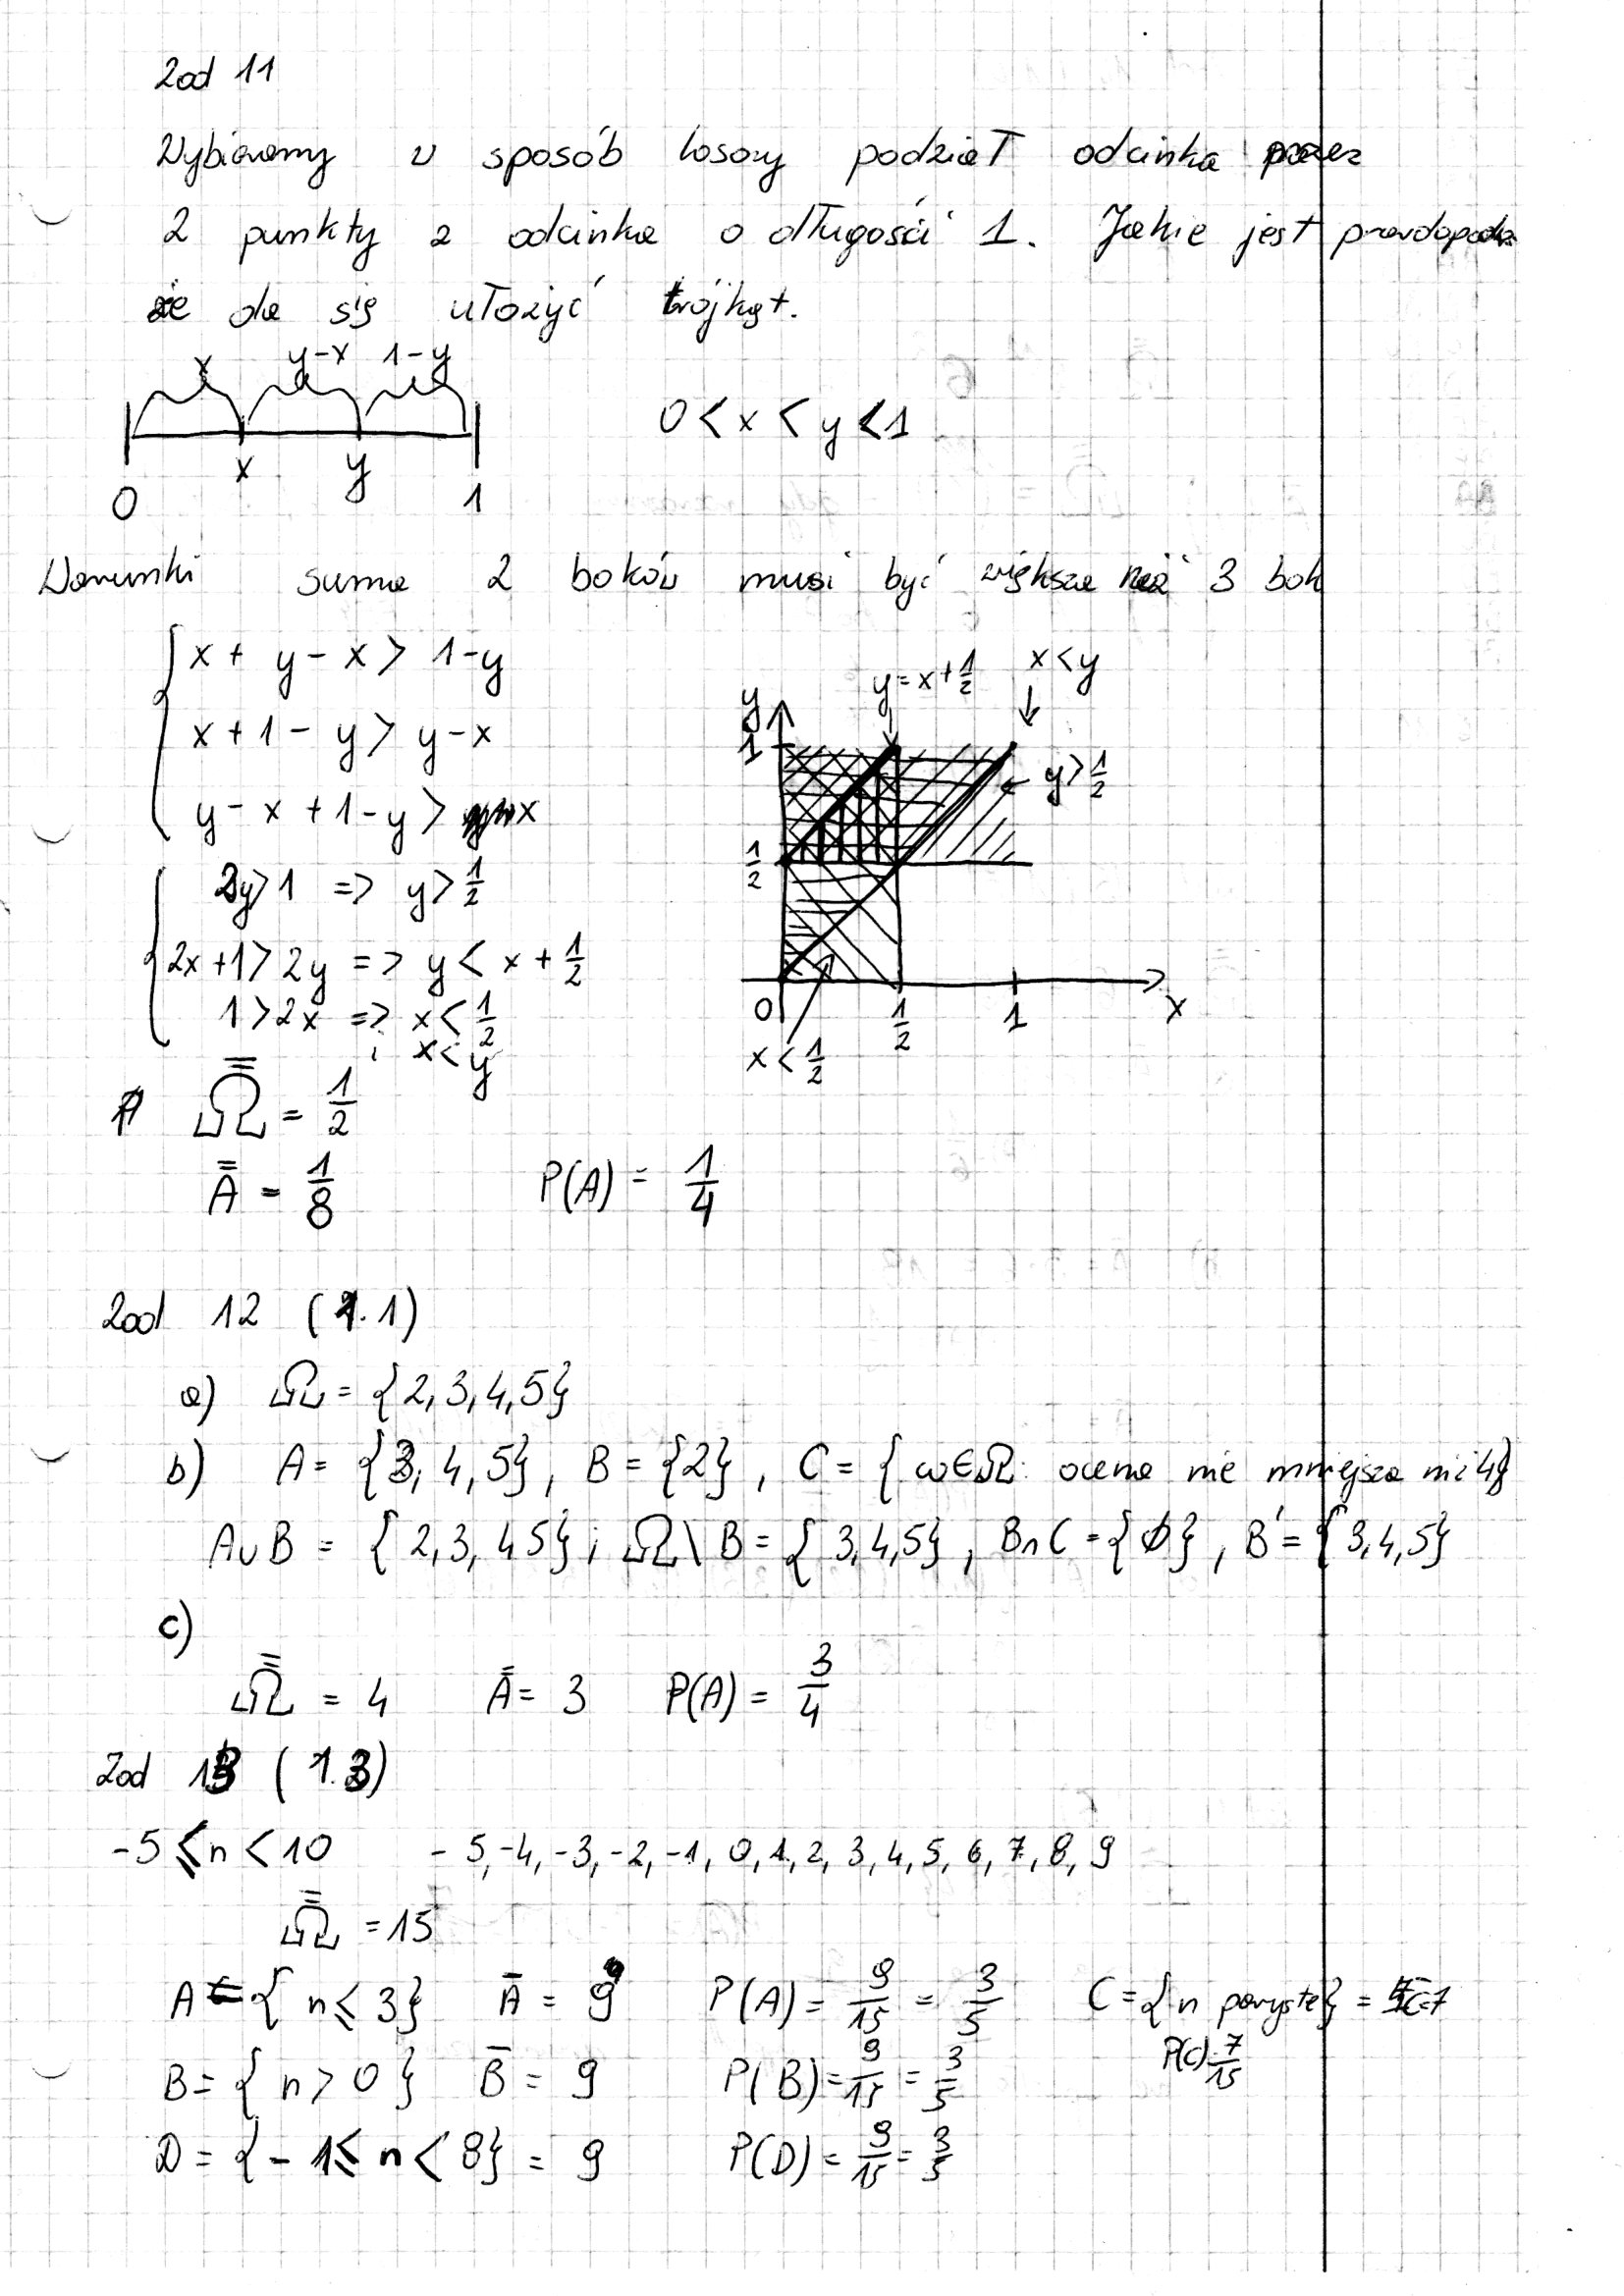 Zad 11
Wybieramy w sposób losowy podział odcinka przez
2 punkty z odcinka o długości 1. Jakie jest prawdopodob.
że da się ułożyć trójkąt.
x y-x 1-y
0 x y 1
0 < x < y < 1
Warunki suma 2 boków musi być większa niż 3 bok
x + y - x > 1-y
x + 1 - y > y - x
y - x + 1 - y > x
2y > 1 => y > 1/2
2x + 1 > 2y => y < x + 1/2
1 > 2x => x < 1/2
i x < y
y = x + 1/2 x < y
y
1
y > 1/2
1/2
0 1/2 1 x
x < 1/2
Ω̿ = 1/2
A̿ = 1/8 P(A) = 1/4
Zad 12 (1.1)
a) Ω = {2, 3, 4, 5}
b) A = {3, 4, 5}, B = {2}, C = {ω∈Ω: ocena nie mniejsza niż 4}
A∪B = {2, 3, 4 5}; Ω\B = {3,4,5}, B∩C = {∅}, B' = {3,4,5}
c)
Ω̿ = 4 A̿ = 3 P(A) = 3/4
Zad 13 (1.3)
-5 ≤ n < 10 -5, -4, -3, -2, -1, 0, 1, 2, 3, 4, 5, 6, 7, 8, 9
Ω̿ = 15
A = {n ≤ 3} A̅ = 9 P(A) = 9/15 = 3/5 C = {n parzyste} = 7
P(C) = 7/15
B = {n > 0} B̅ = 9 P(B) = 9/15 = 3/5
D = {-1 ≤ n < 8} = 9 P(D) = 9/15 = 3/5